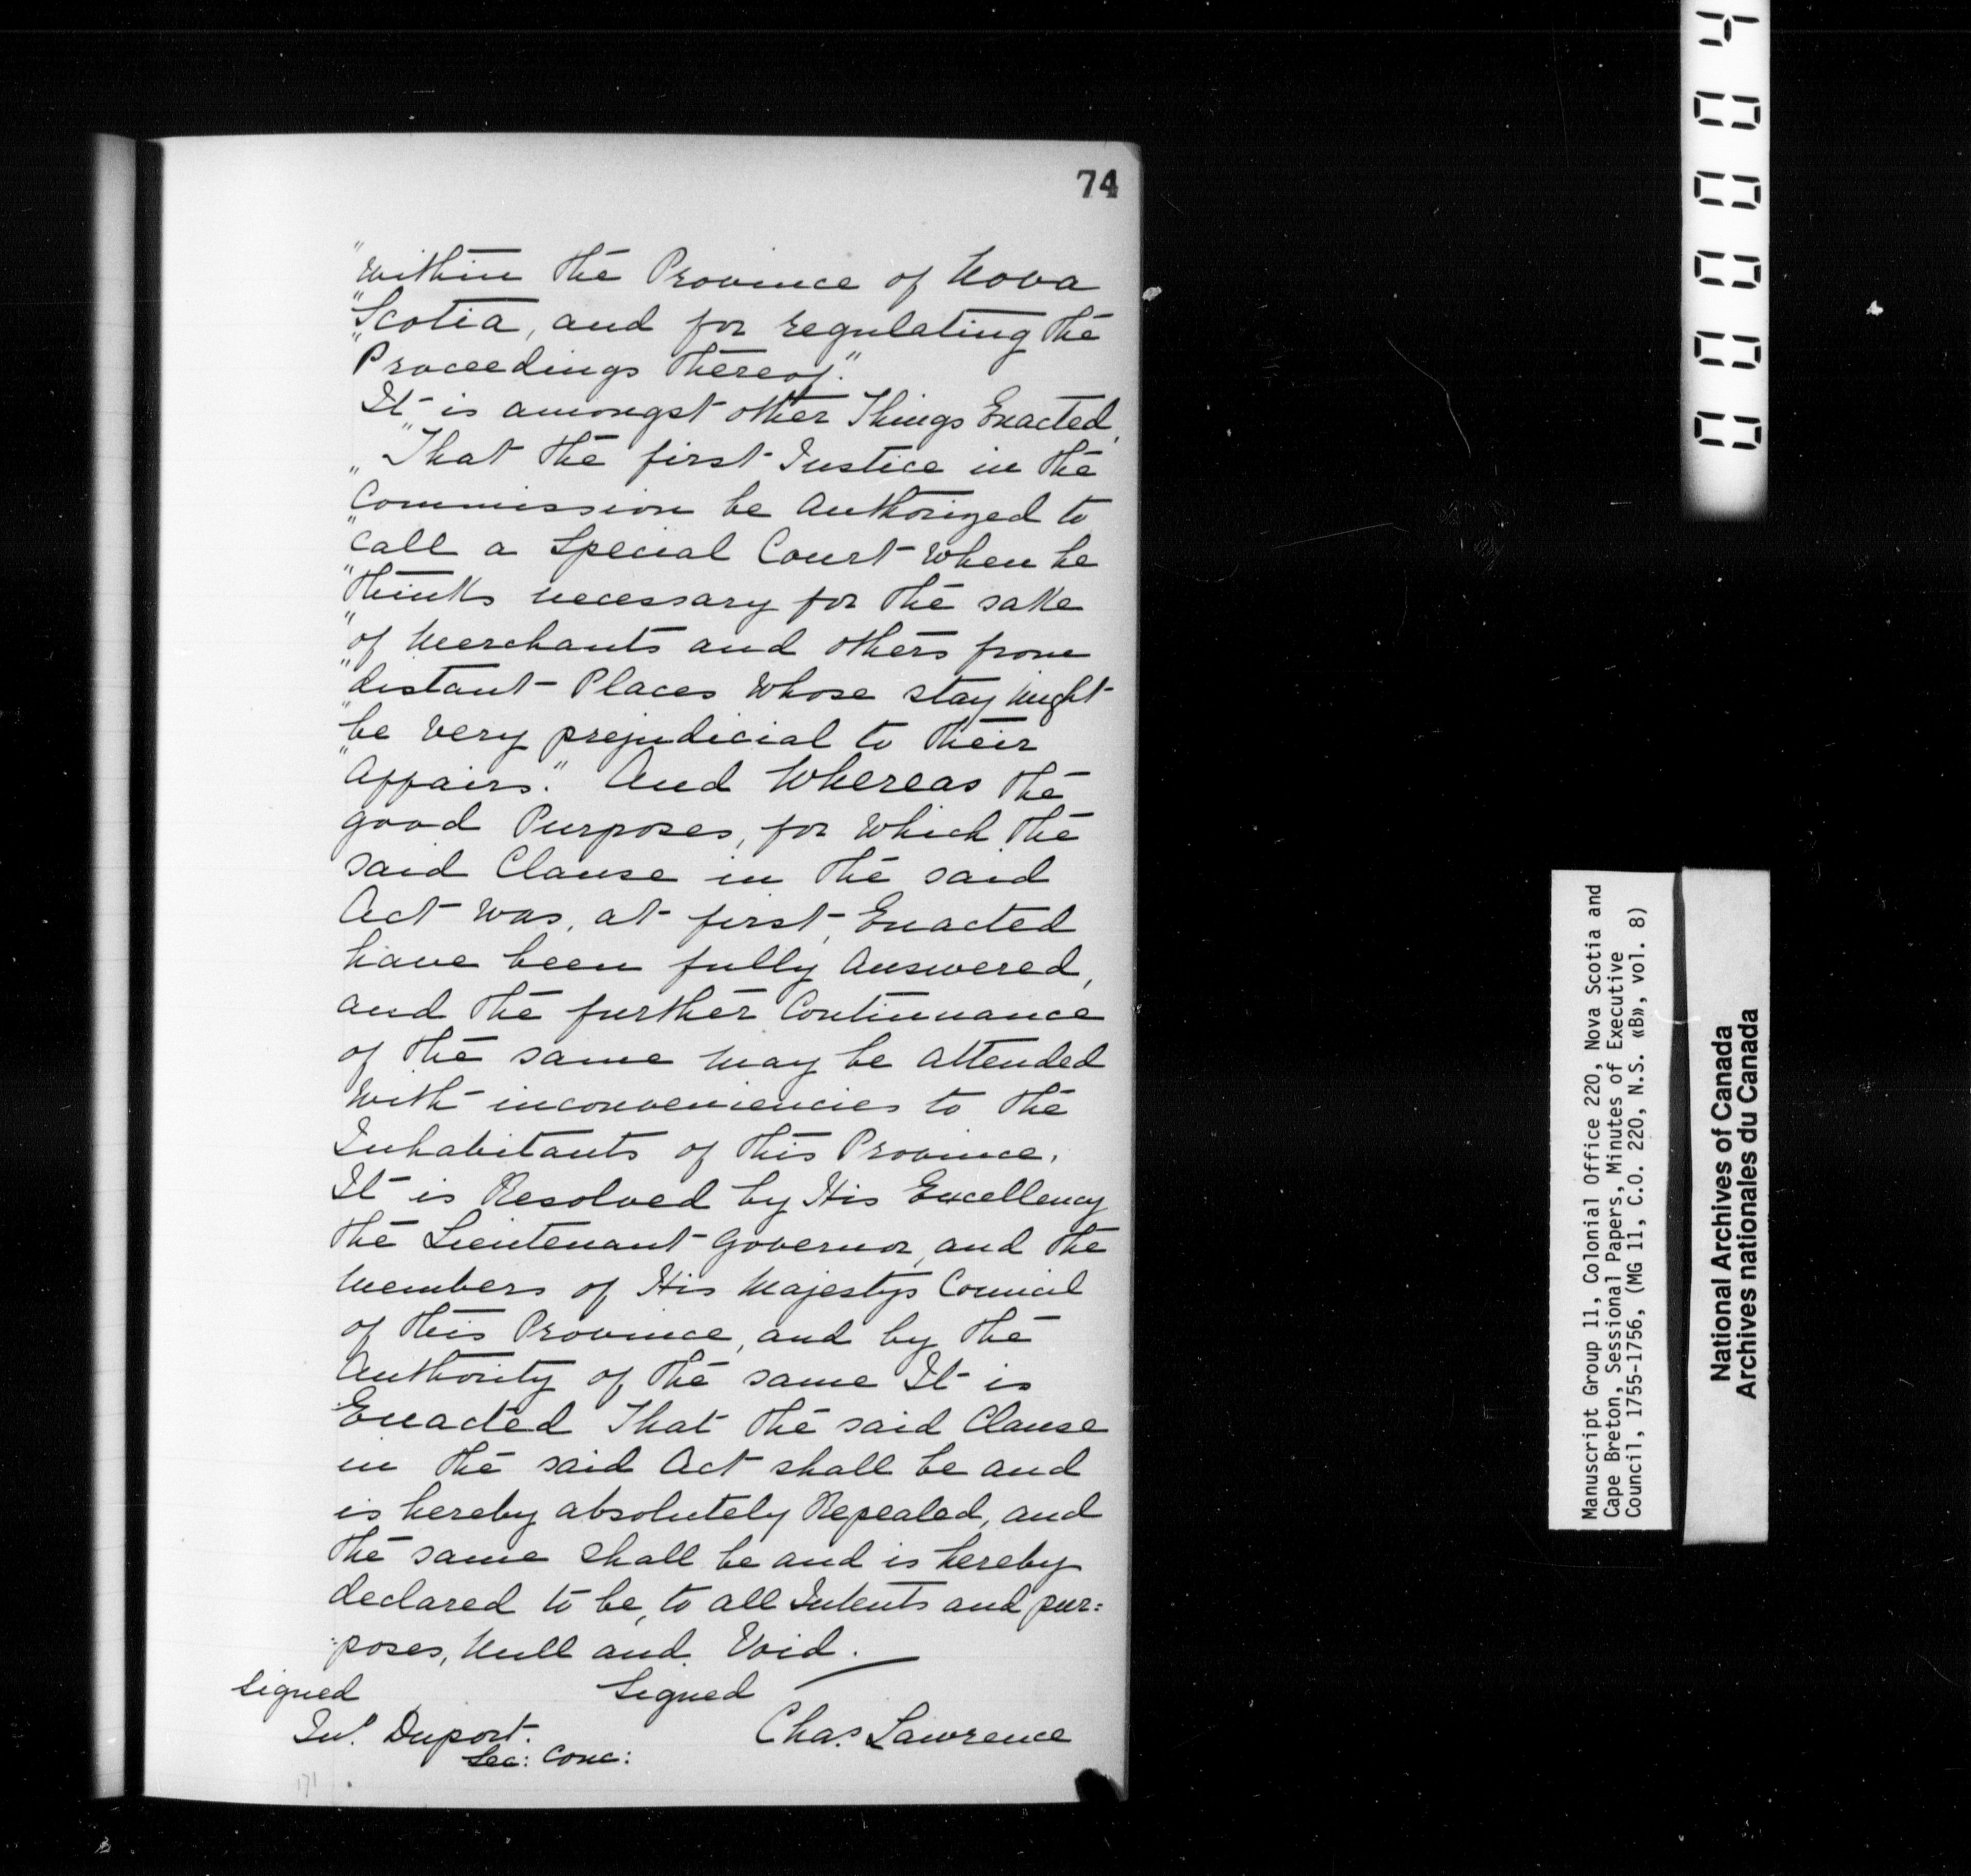 74
"within the Province of Nova
"Scotia, and for regulating the
"Proceedings thereof."
It is amongst other Things Enacted,
"That the first Justice in the
"Commission be Authorized to
"call a Special Court when he
"thinks necessary for the sake
"of Merchants and others from
"distant Places whose stay might
"be very prejudicial to their
"Affairs." And Whereas the
good Purposes, for which the
said Clause in the said
Act was, at first, Enacted
have been fully answered,
and the further Continuance
of the same may be attended
with inconveniencies to the
Inhabitants of this Province.
It is Resolved by His Excellency
the Lieutenant Governor, and the
Members of His Majestys Council
of this Province, and by the
Authority of the same It is
Enacted That the said Clause
in the said Act shall be and
is hereby absolutely Repealed, and
the same shall be and is hereby
declared to be, to all Intents and pur:
:poses, Null and Void.
Signed Signed
Jno. Duport. Chas. Lawrence
Sec: Conc:
171
000004
Manuscript Group 11, Colonial Office 220, Nova Scotia and
Cape Breton, Sessional Papers, Minutes of Executive
Council, 1755-1756, (MG 11, C.O. 220, N.S. «B», vol. 8)
National Archives of Canada
Archives nationales du Canada